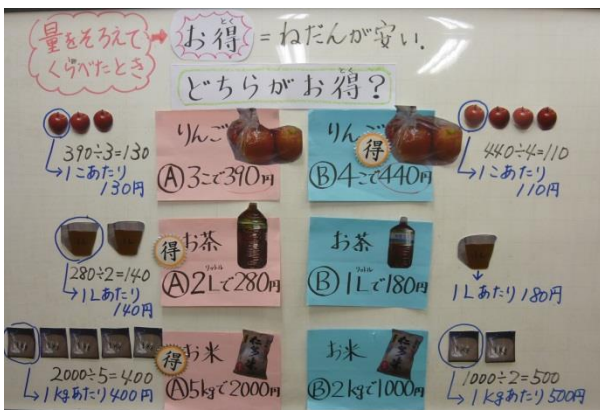 量をそろえて
くらべたとき
お得=ねだんが安い.
とく
どちらがお得?
とく
390÷3=130
1こあたり
130円
りんご
Ⓐ3こで390円
りんご
得
Ⓑ4こで440円
440÷4=110
1こあたり
110円
280÷2=140
1Lあたり
140円
得
お茶
リットル
Ⓐ2Lで280円
お茶
リットル
Ⓑ1Lで180円
1Lあたり180円
2000÷5=400
1kgあたり400円
得
お米
Ⓐ5kgで2000円
お米
Ⓑ2kgで1000円
1000÷2=500
1kgあたり500円